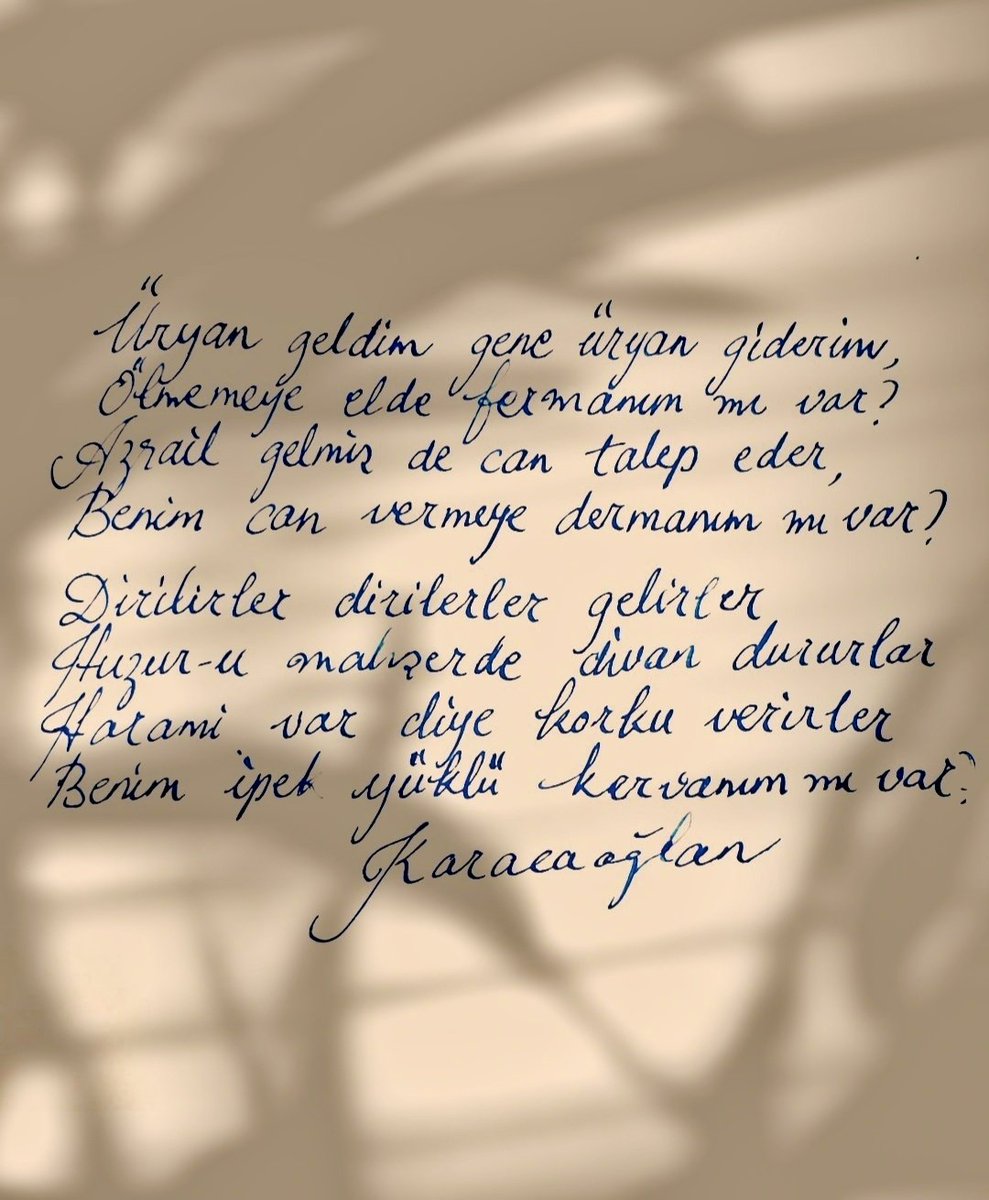 Üryan geldim gene üryan giderim,
Ölmemeye elde fermânım mı var?
Azrail gelmiş de can talep eder,
Benim can vermeye dermanım mı var?
Dirilirler dirilerler gelirler
Huzur-u mahşerde divan dururlar
Harami var diye korku verirler
Benim ipek yüklü kervanım mı var?
Karacaoğlan